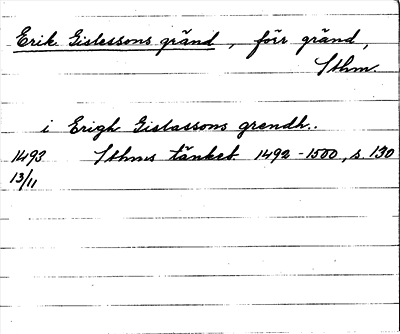 Erik Gislessons gränd, förr gränd,
Sthm.
i Erigh Gislassons grendh..
1493 Sthms tänkeb. 1492-1500, s 130
13/11